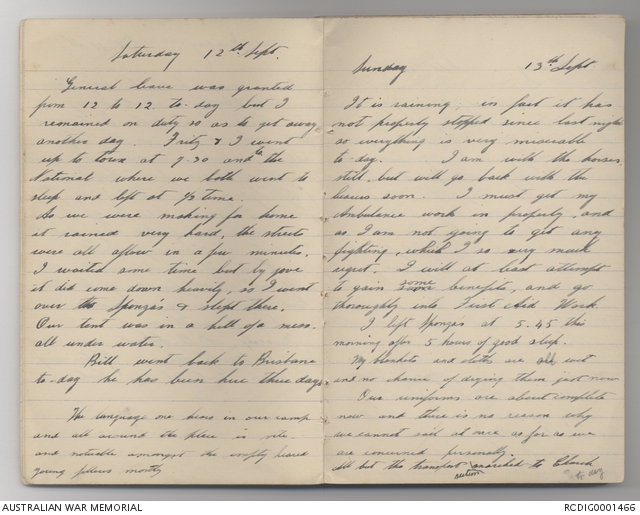 Saturday 12th Sept.
General leave was granted
from 12 to 12 to-day but I
remained on duty so as to get away
another day. Fritz & I went
up to town at 7-30 and to the
National where we both went to
sleep and left at ½ time.
As we were making for home
it rained very hard, the streets
were all aflow in a few minutes.
I waited some time but by jove
it did come down heavily, so I went
over to Sponza's & slept there.
Our tent was in a hell of a mess.
all under water.
Bill went back to Brisbane
to-day he has been here three days.
The language one hears in our camp
and all around the place is vile
and noticable amongst the empty heard
young fellows mostly
Sunday 13th Sept
It is raining, in fact it has
not properly stopped since last night
so everything is very miserable
to day. I am with the horses
still, but will go back with the
bearers soon. I must get my
Ambulance work in properly, and
as I am not going to get any
fighting, which I so very much
regret. I will at least attempt
to gain some benefits, and go
thoroughly into First Aid Work.
I left Sponzas at 5.45 this
morning after 5 hours of good sleep.
My blankets and clothes are all wet
and no chance of drying them just now
Our uniforms are about complete
now and there is no reason why
we cannot sail at once as far as we
are concerned personally.
All but the transport section marched to Church
to day
AUSTRALIAN WAR MEMORIAL
RCDIG0001466